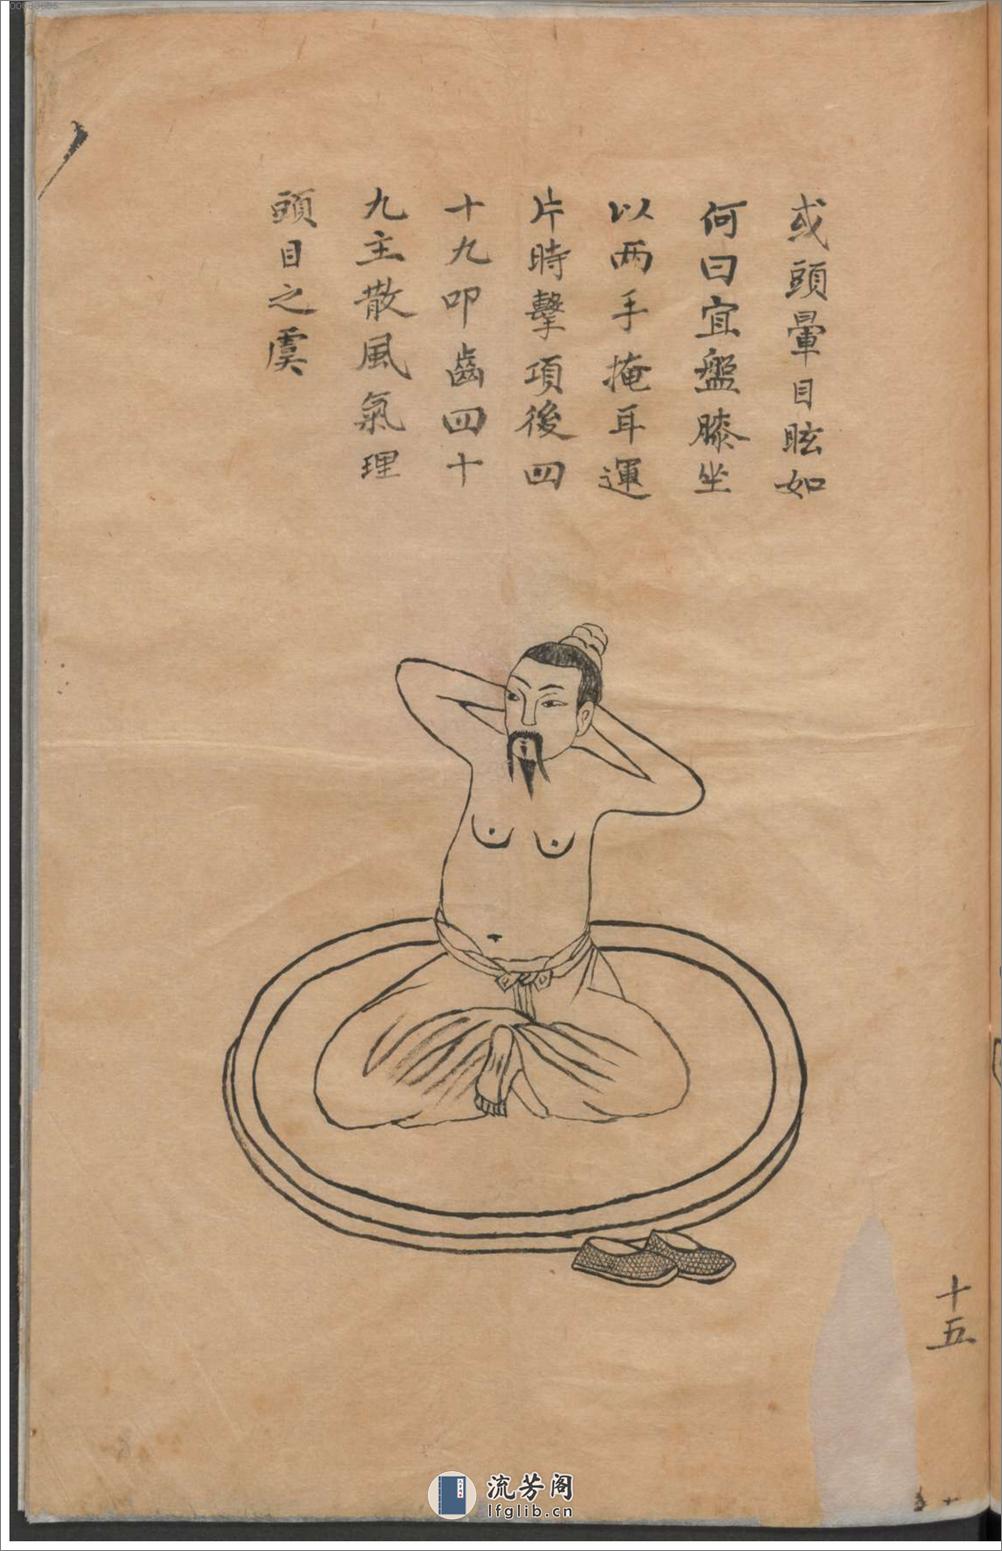 或頭暈目眩如
何曰宜盤膝坐
以两手掩耳運
片時擊項後四
十九叩齒四十
九主散風氣理
頭目之虞
十五
流芳阁
lfglib.cn